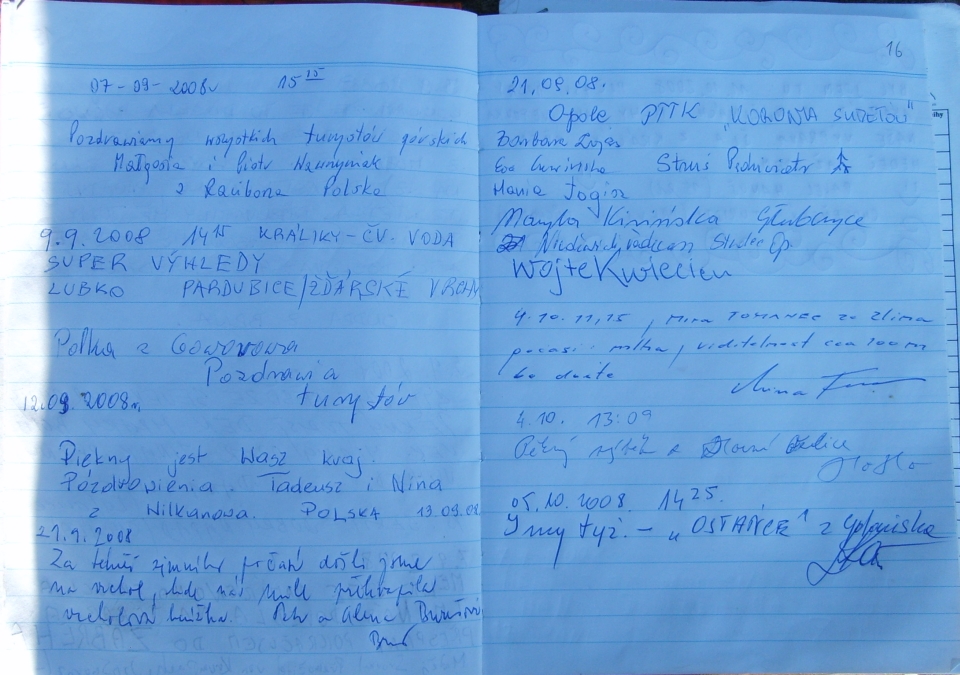 07-09-2008 15 15
Pozdrawiamy wszystkich turystów górskich
Małgosia i Piotr Nawrynek
z Raciborza Polska
9.9.2008 14 15 KRÁLIKY-ČV. VODA
SUPER VÝHLEDY
LUBKO PARDUBICE/ŽĎÁRSKÉ VRCHY
Polka z Goworowa
Pozdrawia
12.09.2008r. turystów
Piękny jest Wasz kraj.
Pozdrowienia. Tadeusz i Nina
z Wilkanowa. POLSKA 13.09.08
21.9.2008
Za zimního počasí došli jsme
na vrchol, kde nás mile překvapila
vrcholová knížka. Petr a Alena
16
21.09.08.
Opole PTTK "KORONA SUDETÓW"
Barbara
Ewa Struś Pędziwiatr
Hania Jogisz
Maryla Kirińska Głubczyce
Wojtek Kwiecień
4.10. 11,15, Mira TOMANEC ze Zlína
počasí: mlha, viditelnost cca 100m
4.10. 13:09
Pěkný výšlap z Horní
05.10.2008. 14 25.
I my tyż. - "OSTAŃCE" z